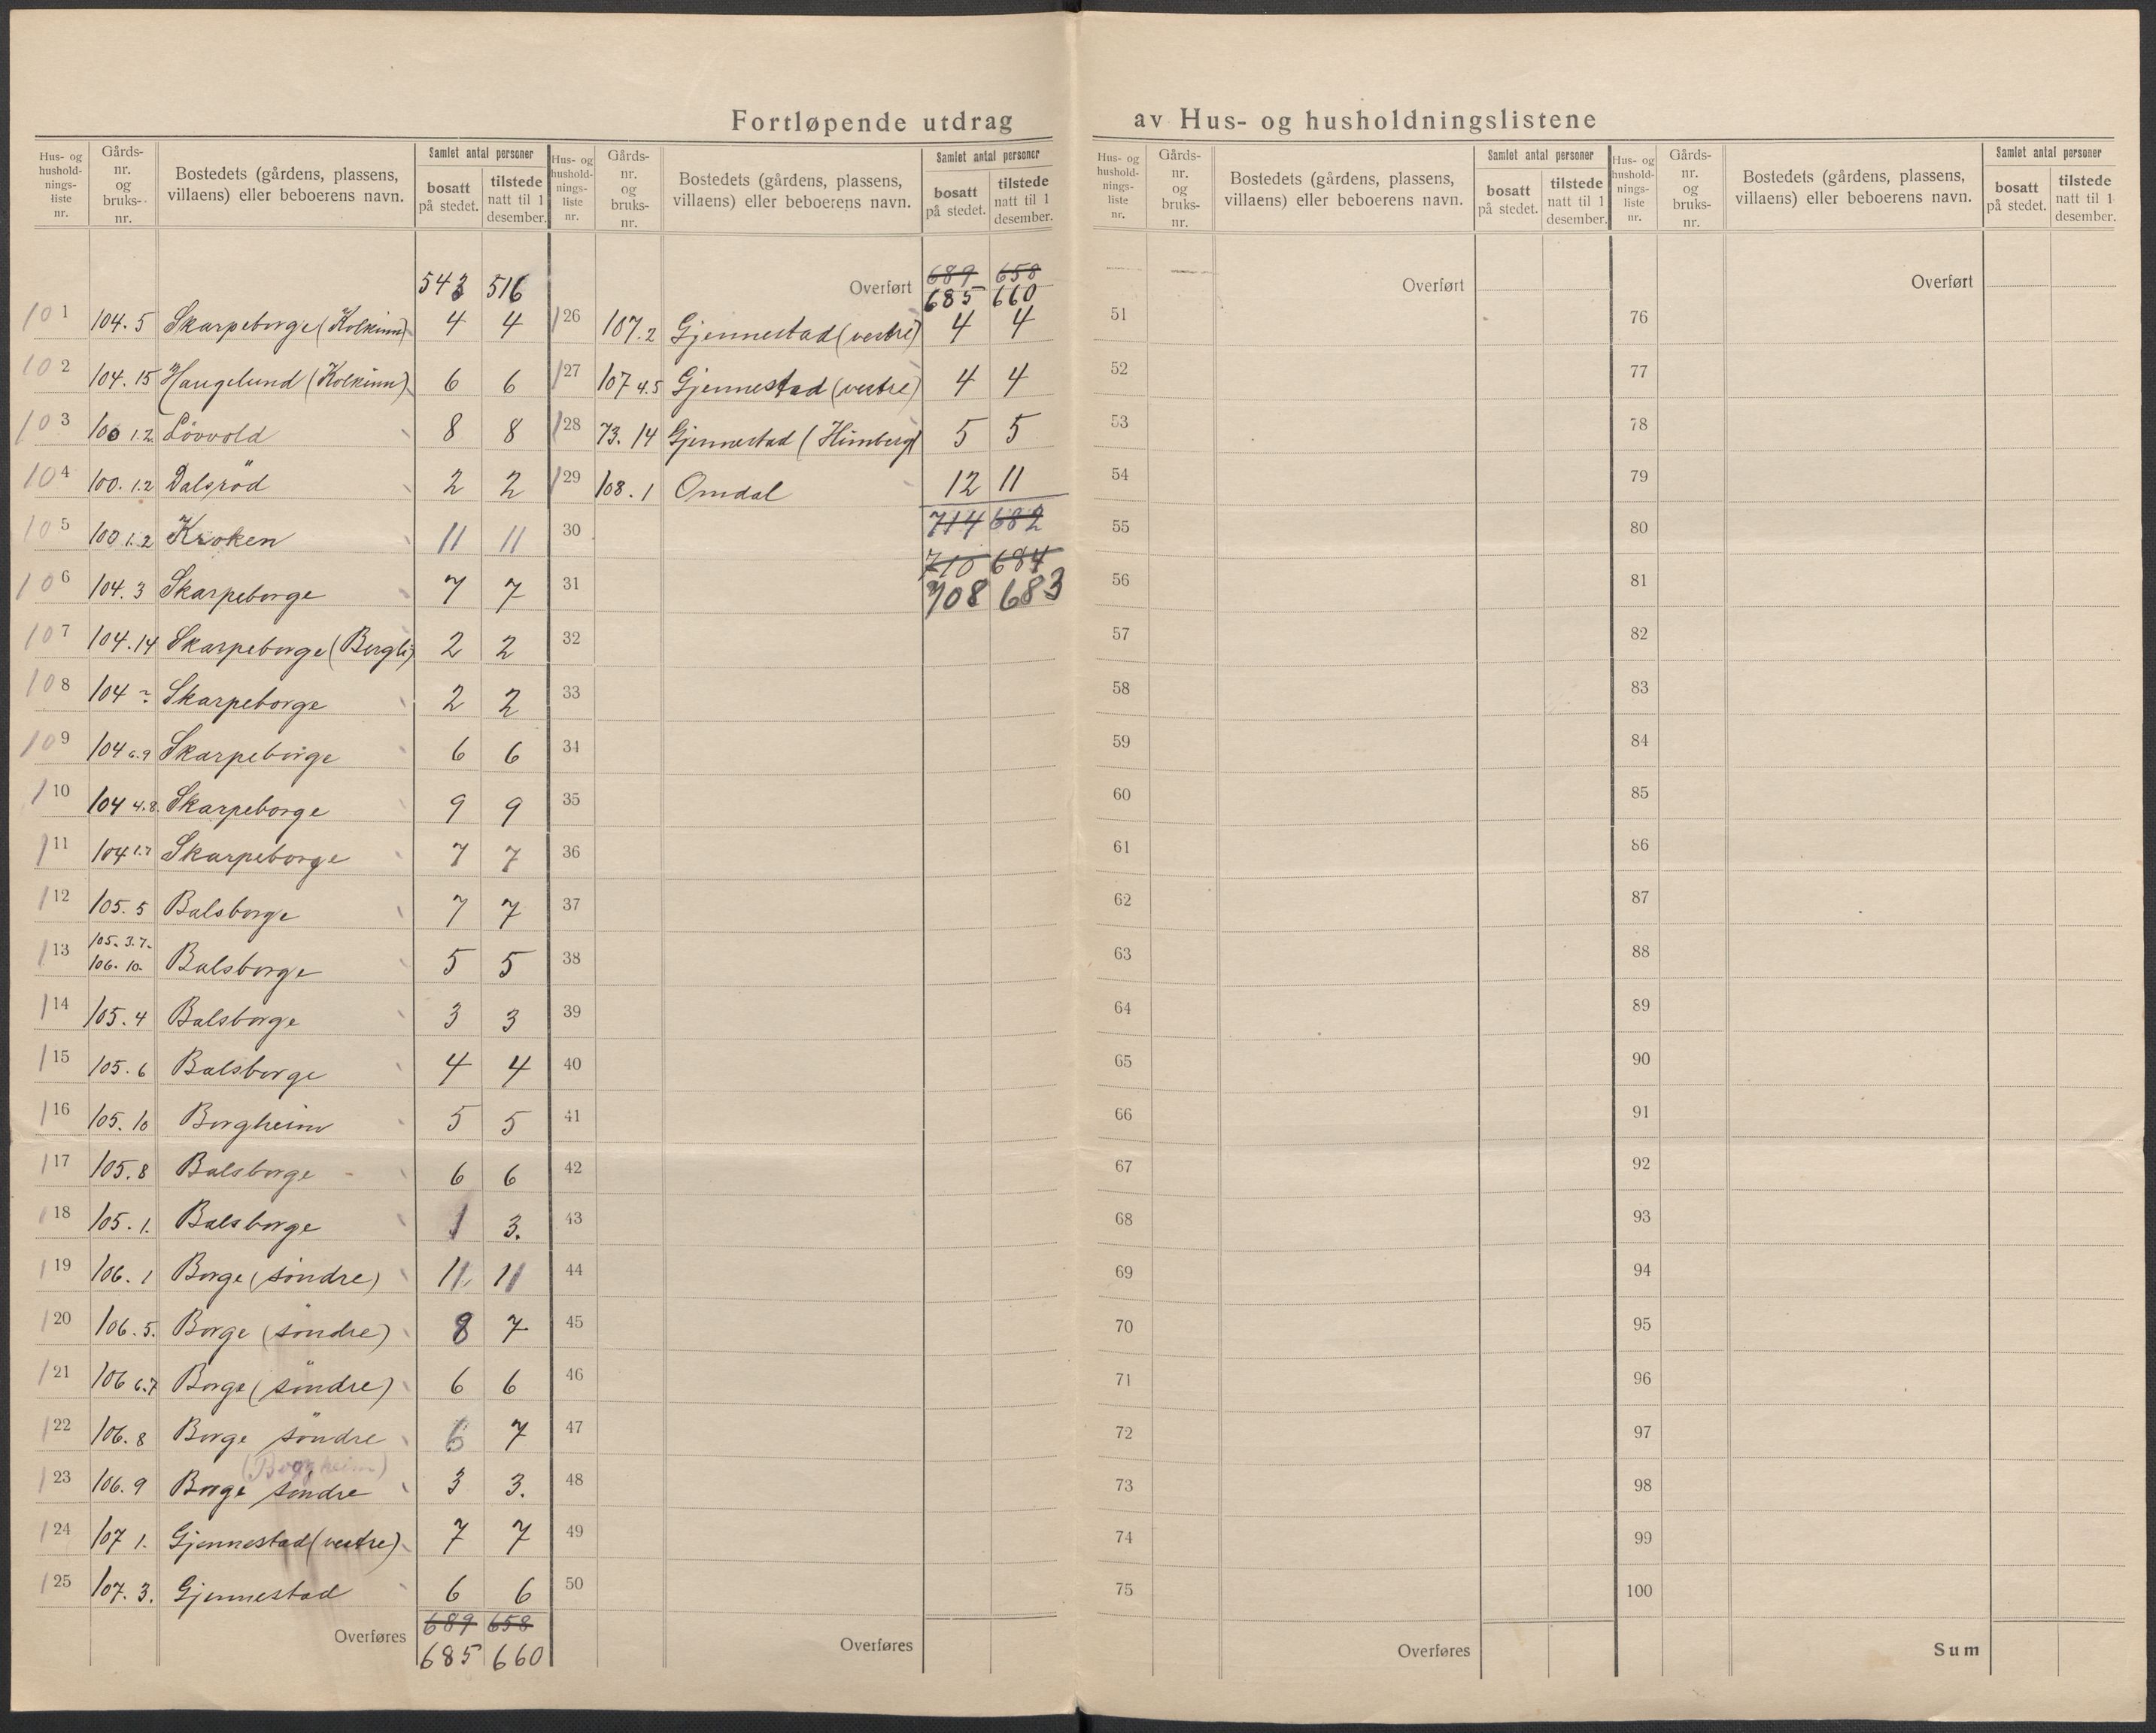 Fortløpende utdrag av Hus- og husholdningslistene
Hus- og hushold-nings-liste nr. Gårds-nr. og bruks-nr. Bostedets (gårdens, plassens, villaens) eller beboerens navn. Samlet antal personer bosatt på stedet. tilstede natt til 1 desember.
543 516
101 104.5 Skarpeborge (Kolkinn) 4 4
102 104.15 Haugelund (Kolkinn) 6 6
103 100 1.2. Lövvold 8 8
104 100. 1.2 Dalsröd 2 2
105 100 1.2 Kroken 11 11
106 104.3 Skarpeborge 7 7
107 104.14 Skarpeborge (Bergli) 2 2
108 104 Skarpeborge 2 2
109 104 6.9 Skarpeborge 6 6
110 104 4.8. Skarpeborge 9 9
111 104 Skarpeborge 7 7
112 105.5 Balsborge 7 7
113 105.3.7. 106.10. Balsborge 5 5
114 105.4 Balsborge 3 3
115 105.6 Balsborge 4 4
116 105.10 Borgheim 5 5
117 105.8 Balsborge 6 6
118 105.1. Balsborge 1 3.
119 106.1 Borge (söndre) 11 11
120 106.5. Borge (söndre) 8 7
121 106 6.7 Borge (söndre) 6 6
122 106.8 Borge söndre 6 7
(Borgheim)
123 106.9 Borge söndre 3 3.
124 107 1. Gjennestad (vestre) 7 7
125 107.3. Gjennestad 6 6
689 658
Overføres 685 660
Hus- og hushold-nings-liste nr. Gårds-nr. og bruks-nr. Bostedets (gårdens, plassens, villaens) eller beboerens navn. Samlet antal personer bosatt på stedet. tilstede natt til 1 desember.
689 658
Overført 685 660
126 107.2 Gjennestad (vestre) 4 4
127 107 4.5 Gjennestad (vestre) 4 4
128 73.14 Gjennestad (Himberg) 5 5
129 108.1 Omdal 12 11
714 682
30
710 684
31 708 683
32
33
34
35
36
37
38
39
40
41
42
43
44
45
46
47
48
49
50
Overføres
Hus- og hushold-nings-liste nr. Gårds-nr. og bruks-nr. Bostedets (gårdens, plassens, villaens) eller beboerens navn. Samlet antal personer bosatt på stedet. tilstede natt til 1 desember.
Overført
51
52
53
54
55
56
57
58
59
60
61
62
63
64
65
66
67
68
69
70
71
72
73
74
75
Overføres
Hus- og hushold-nings-liste nr. Gårds-nr. og bruks-nr. Bostedets (gårdens, plassens, villaens) eller beboerens navn. Samlet antal personer bosatt på stedet. tilstede natt til 1 desember.
Overført
76
77
78
79
80
81
82
83
84
85
86
87
88
89
90
91
92
93
94
95
96
97
98
99
100
Sum